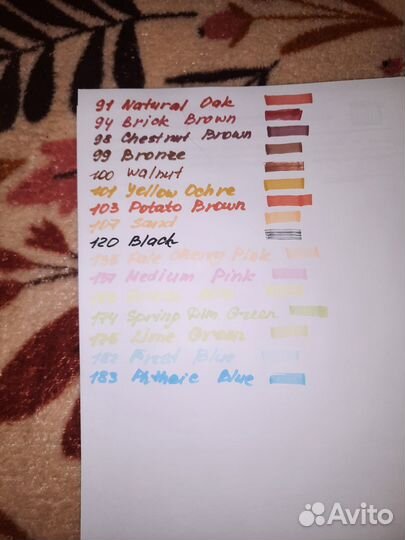 91 Natural Oak
94 Brick Brown
98 Chestnut Brown
99 Bronze
100 Walnut
101 Yellow Ochre
103 Potato Brown
107 Sand
120 Black
Pale Cherry Pink
137 Medium Pink
174 Spring Dim Green
175 Lime Green
182 Frost Blue
183 Phthaie Blue
Avito